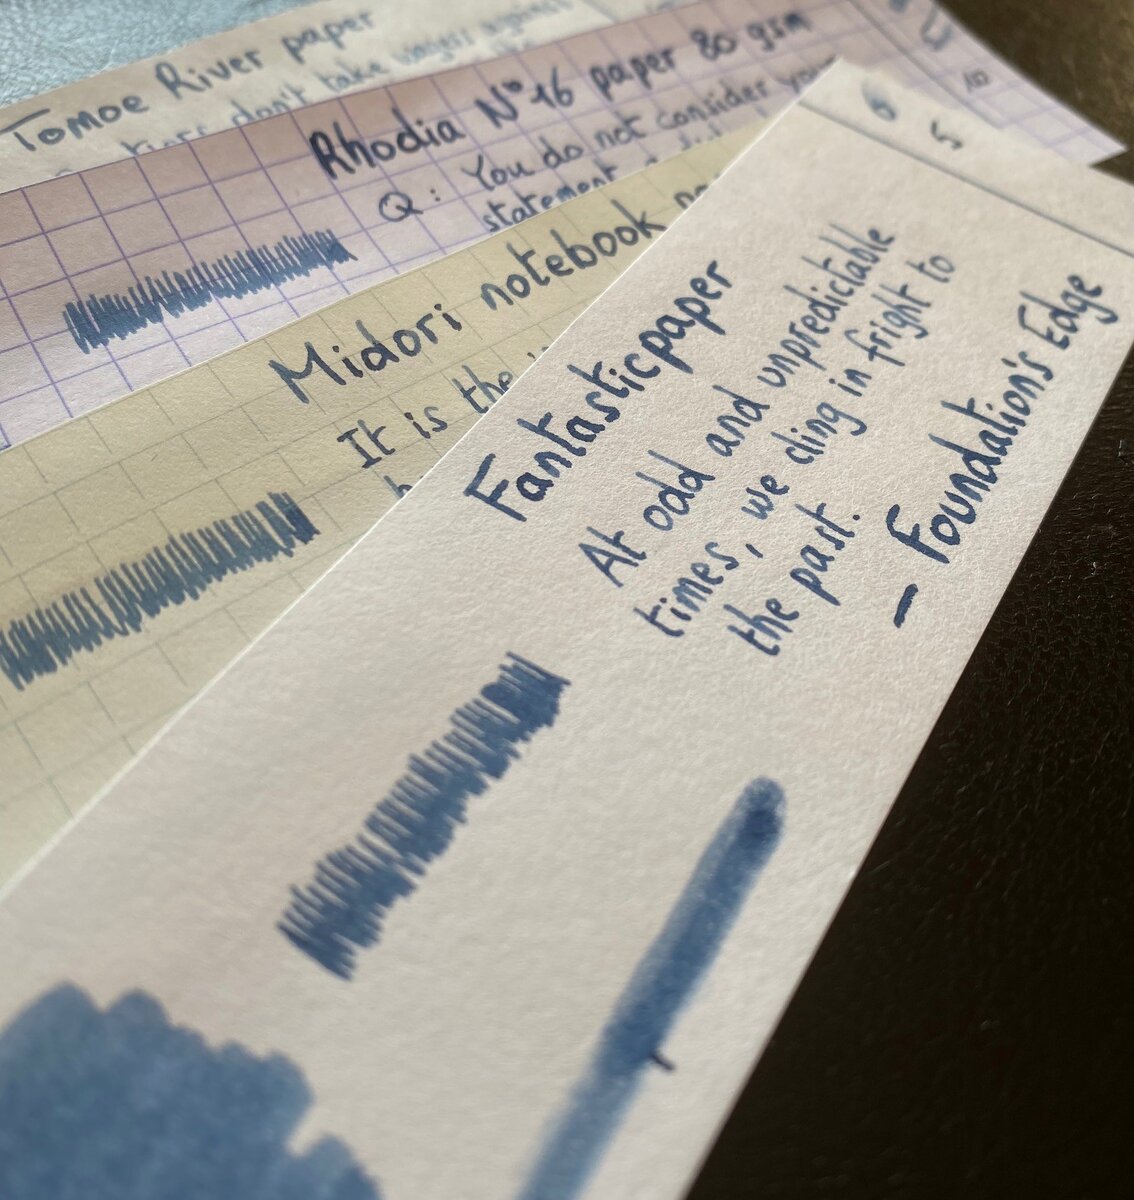 Tomoe River paper
don't take
Rhodia N°16 paper 80 gsm
Q: You do not consider
statement
Midori notebook
It is the
Fantasticpaper
At odd and unpredictable
times, we cling in fright to
the past.
— Foundation's Edge
5
10